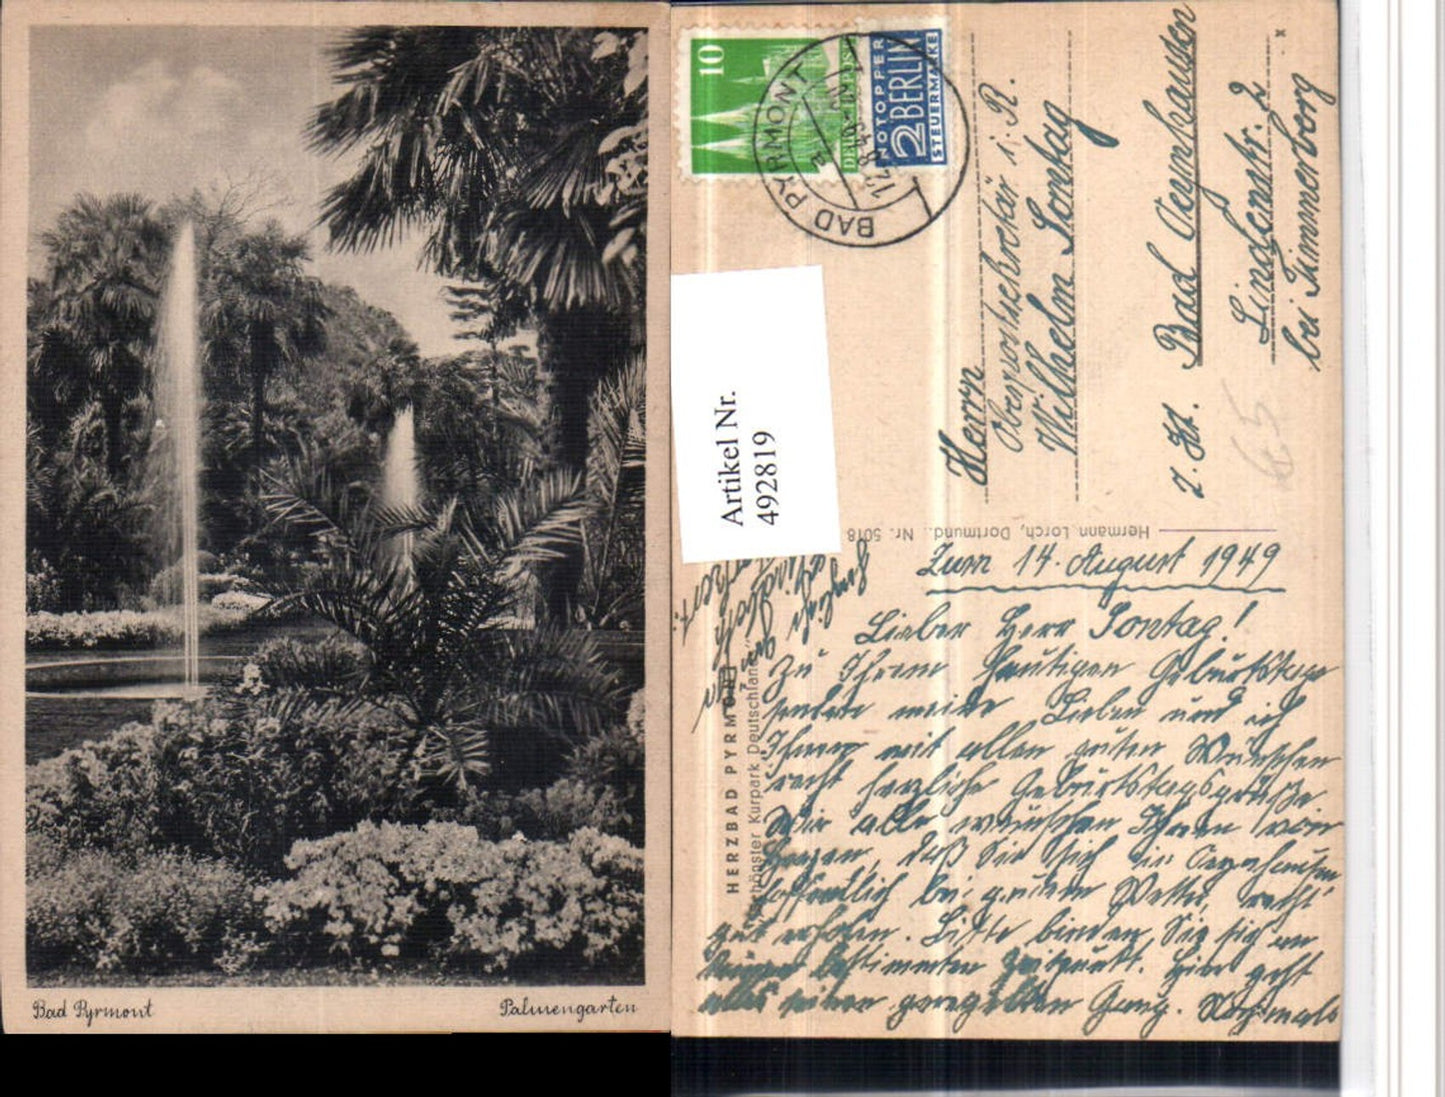 Bad Pyrmont
Palmengarten
10
DEUTSCHE POST
NOTOPFER
2 BERLIN
STEUERMARKE
BAD PYRMONT
Artikel Nr.
492819
Herrn
Oberpostsekretär i. R.
Wilhelm Sontag
z. Zt. Bad Oeynhausen
Lindenstr. 2
bei Trimmerberg
65
Hermann Lorch, Dortmund. Nr. 5018
HERZBAD PYRMONT
Schönster Kurpark Deutschlands
Zum 14. August 1949
Lieber Herr Sontag!
Zu Ihrem heutigen Geburtstage
senden meine Lieben und ich
Ihnen mit allen guten Wünschen
recht herzliche Geburtstagsgrüße.
Wir alle wünschen Ihnen von
Herzen, daß Sie sich in Oeynhausen
hoffentlich bei gutem Wetter recht
gut erholen. Bitte binden Sie sich an
keinen bestimmten Zeitpunkt. Hier geht
alles seinen geregelten Gang. Nochmals